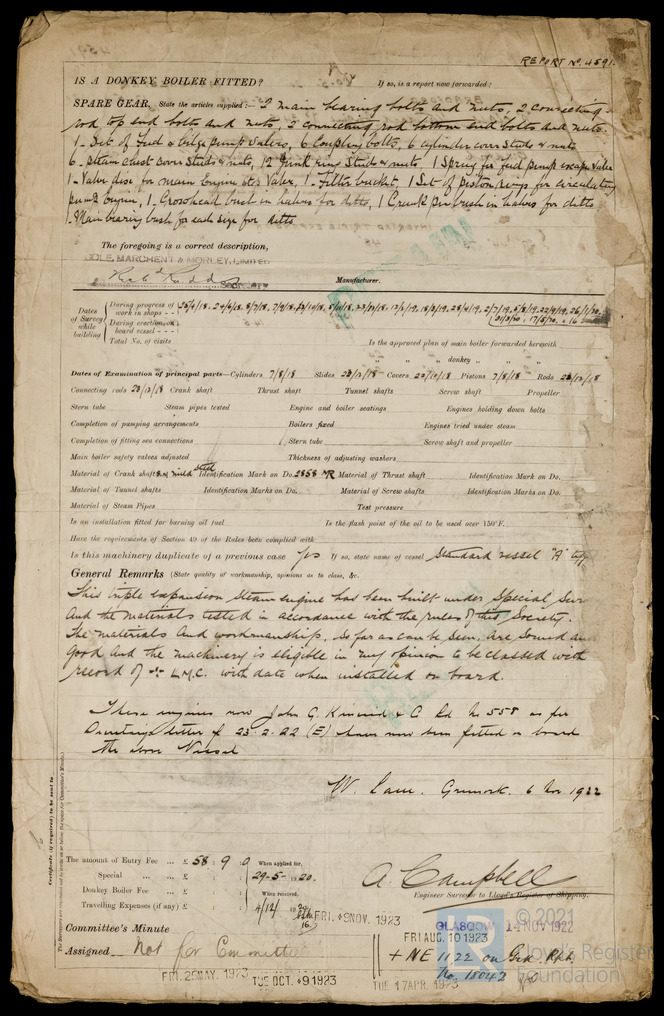 REPORT No. 4591.
IS A DONKEY BOILER FITTED? If so, is a report now forwarded?
SPARE GEAR. State the articles supplied:— 2 main bearing bolts and nuts, 2 connecting
rod top end bolts and nuts, 2 connecting rod bottom end bolts and nuts.
1 - Set of Feed & bilge pump valves, 6 Coupling bolts, 6 cylinder cover studs & nuts
6 - Steam chest cover studs & nuts, 12 Junk ring studs & nuts. 1 Spring for feed pump escape valve
1 - Valve disc for main Engine Valve, 1 - Filter bucket, 1 Set of piston rings for circulating
pump Engine, 1 - Crosshead bush in halves for ditto, 1 Crank pin bush in halves for ditto
1 - Main bearing bush for each size for ditto
The foregoing is a correct description,
COLE, MARCHENT & MORLEY, LIMITED
Secretary Manufacturer.
Dates of Survey while building
During progress of work in shops - -
During erection on board vessel - - -
Total No. of visits
Is the approved plan of main boiler forwarded herewith
" " " donkey " " "
Dates of Examination of principal parts—Cylinders 7/8/18 Slides 23/12/18 Covers 22/10/18 Pistons 7/8/18 Rods 23/12/18
Connecting rods 23/12/18 Crank shaft Thrust shaft Tunnel shafts Screw shaft Propeller
Stern tube Steam pipes tested Engine and boiler seatings Engines holding down bolts
Completion of pumping arrangements Boilers fixed Engines tried under steam
Completion of fitting sea connections Stern tube Screw shaft and propeller
Main boiler safety valves adjusted Thickness of adjusting washers
Material of Crank shaft S.M. mild steel Identification Mark on Do. 2858 MR Material of Thrust shaft Identification Mark on Do.
Material of Tunnel shafts Identification Marks on Do. Material of Screw shafts Identification Marks on Do.
Material of Steam Pipes Test pressure
Is an installation fitted for burning oil fuel Is the flash point of the oil to be used over 150°F.
Have the requirements of Section 49 of the Rules been complied with
Is this machinery duplicate of a previous case Yes If so, state name of vessel Standard vessel "A" type
General Remarks (State quality of workmanship, opinions as to class, &c.
This triple expansion Steam engine has been built under Special
And the materials tested in accordance with the rules of this Society.
The materials and workmanship, so far as can be seen, are sound and
good and the machinery is eligible in my opinion to be classed with
record of + L.M.C. with date when installed on board.
These engines now John G. Kincaid & Co Ld No 558 as per
Secretary's letter of 23.2.22 (E) have now been fitted on board
the above Vessel
Greenock. 6 Nov 1922
Certificate (if required) to be sent to
The amount of Entry Fee ... £ 58 : 9 : 0 When applied for,
Special ... £ : : 29-5-1920.
Donkey Boiler Fee ... £ : : When received,
Travelling Expenses (if any) £ : : 4/12/19
A. Campbell
Engineer Surveyor to Lloyd's Register of Shipping.
FRI. NOV. 1923
GLASGOW 14 NOV 1922
Committee's Minute
FRI AUG. 10 1923
Assigned Not for Committee
+ NE 11.22 on Gsk Rpt.
No. 18042
FRI. 25 MAY. 1923
TUES. OCT. 9 1923
TUE 17 APR. 1923
© 2021
Lloyd's Register
Foundation